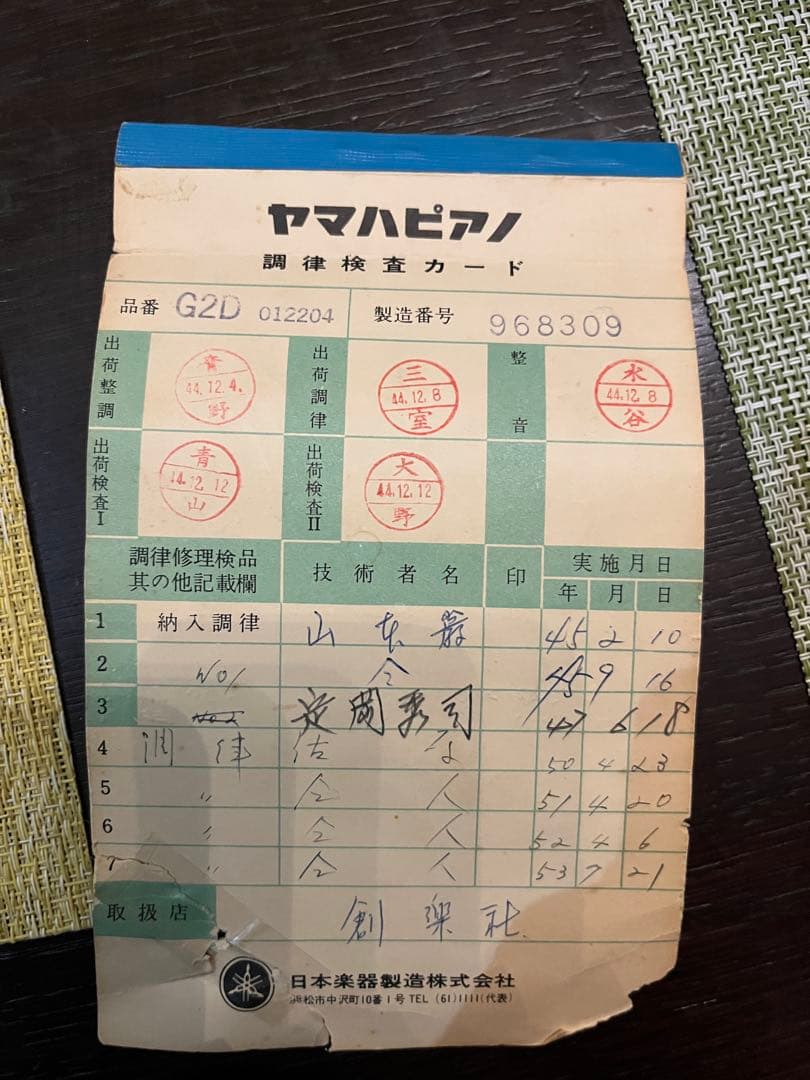 ヤマハピアノ
調律検査カード
品番 G2D 012204 製造番号 968309
出荷整調 青野 44.12.4. 出荷調律 三室 44.12.8 整音 水谷 44.12.8
出荷検査I 青山 44.12.12 出荷検査II 大野 44.12.12
調律修理検品 其の他記載欄 技術者名 印 実施月日 年 月 日
1 納入調律 山本 45 2 10
2 No1 仝 45 9 16
3 No2 秀司 47 6 18
4 調律 佐 50 4 23
5 〃 仝人 51 4 20
6 〃 仝人 52 4 6
7 〃 仝人 53 7 21
取扱店 創楽社
日本楽器製造株式会社
浜松市中沢町10番1号 TEL (61)1111(代表)